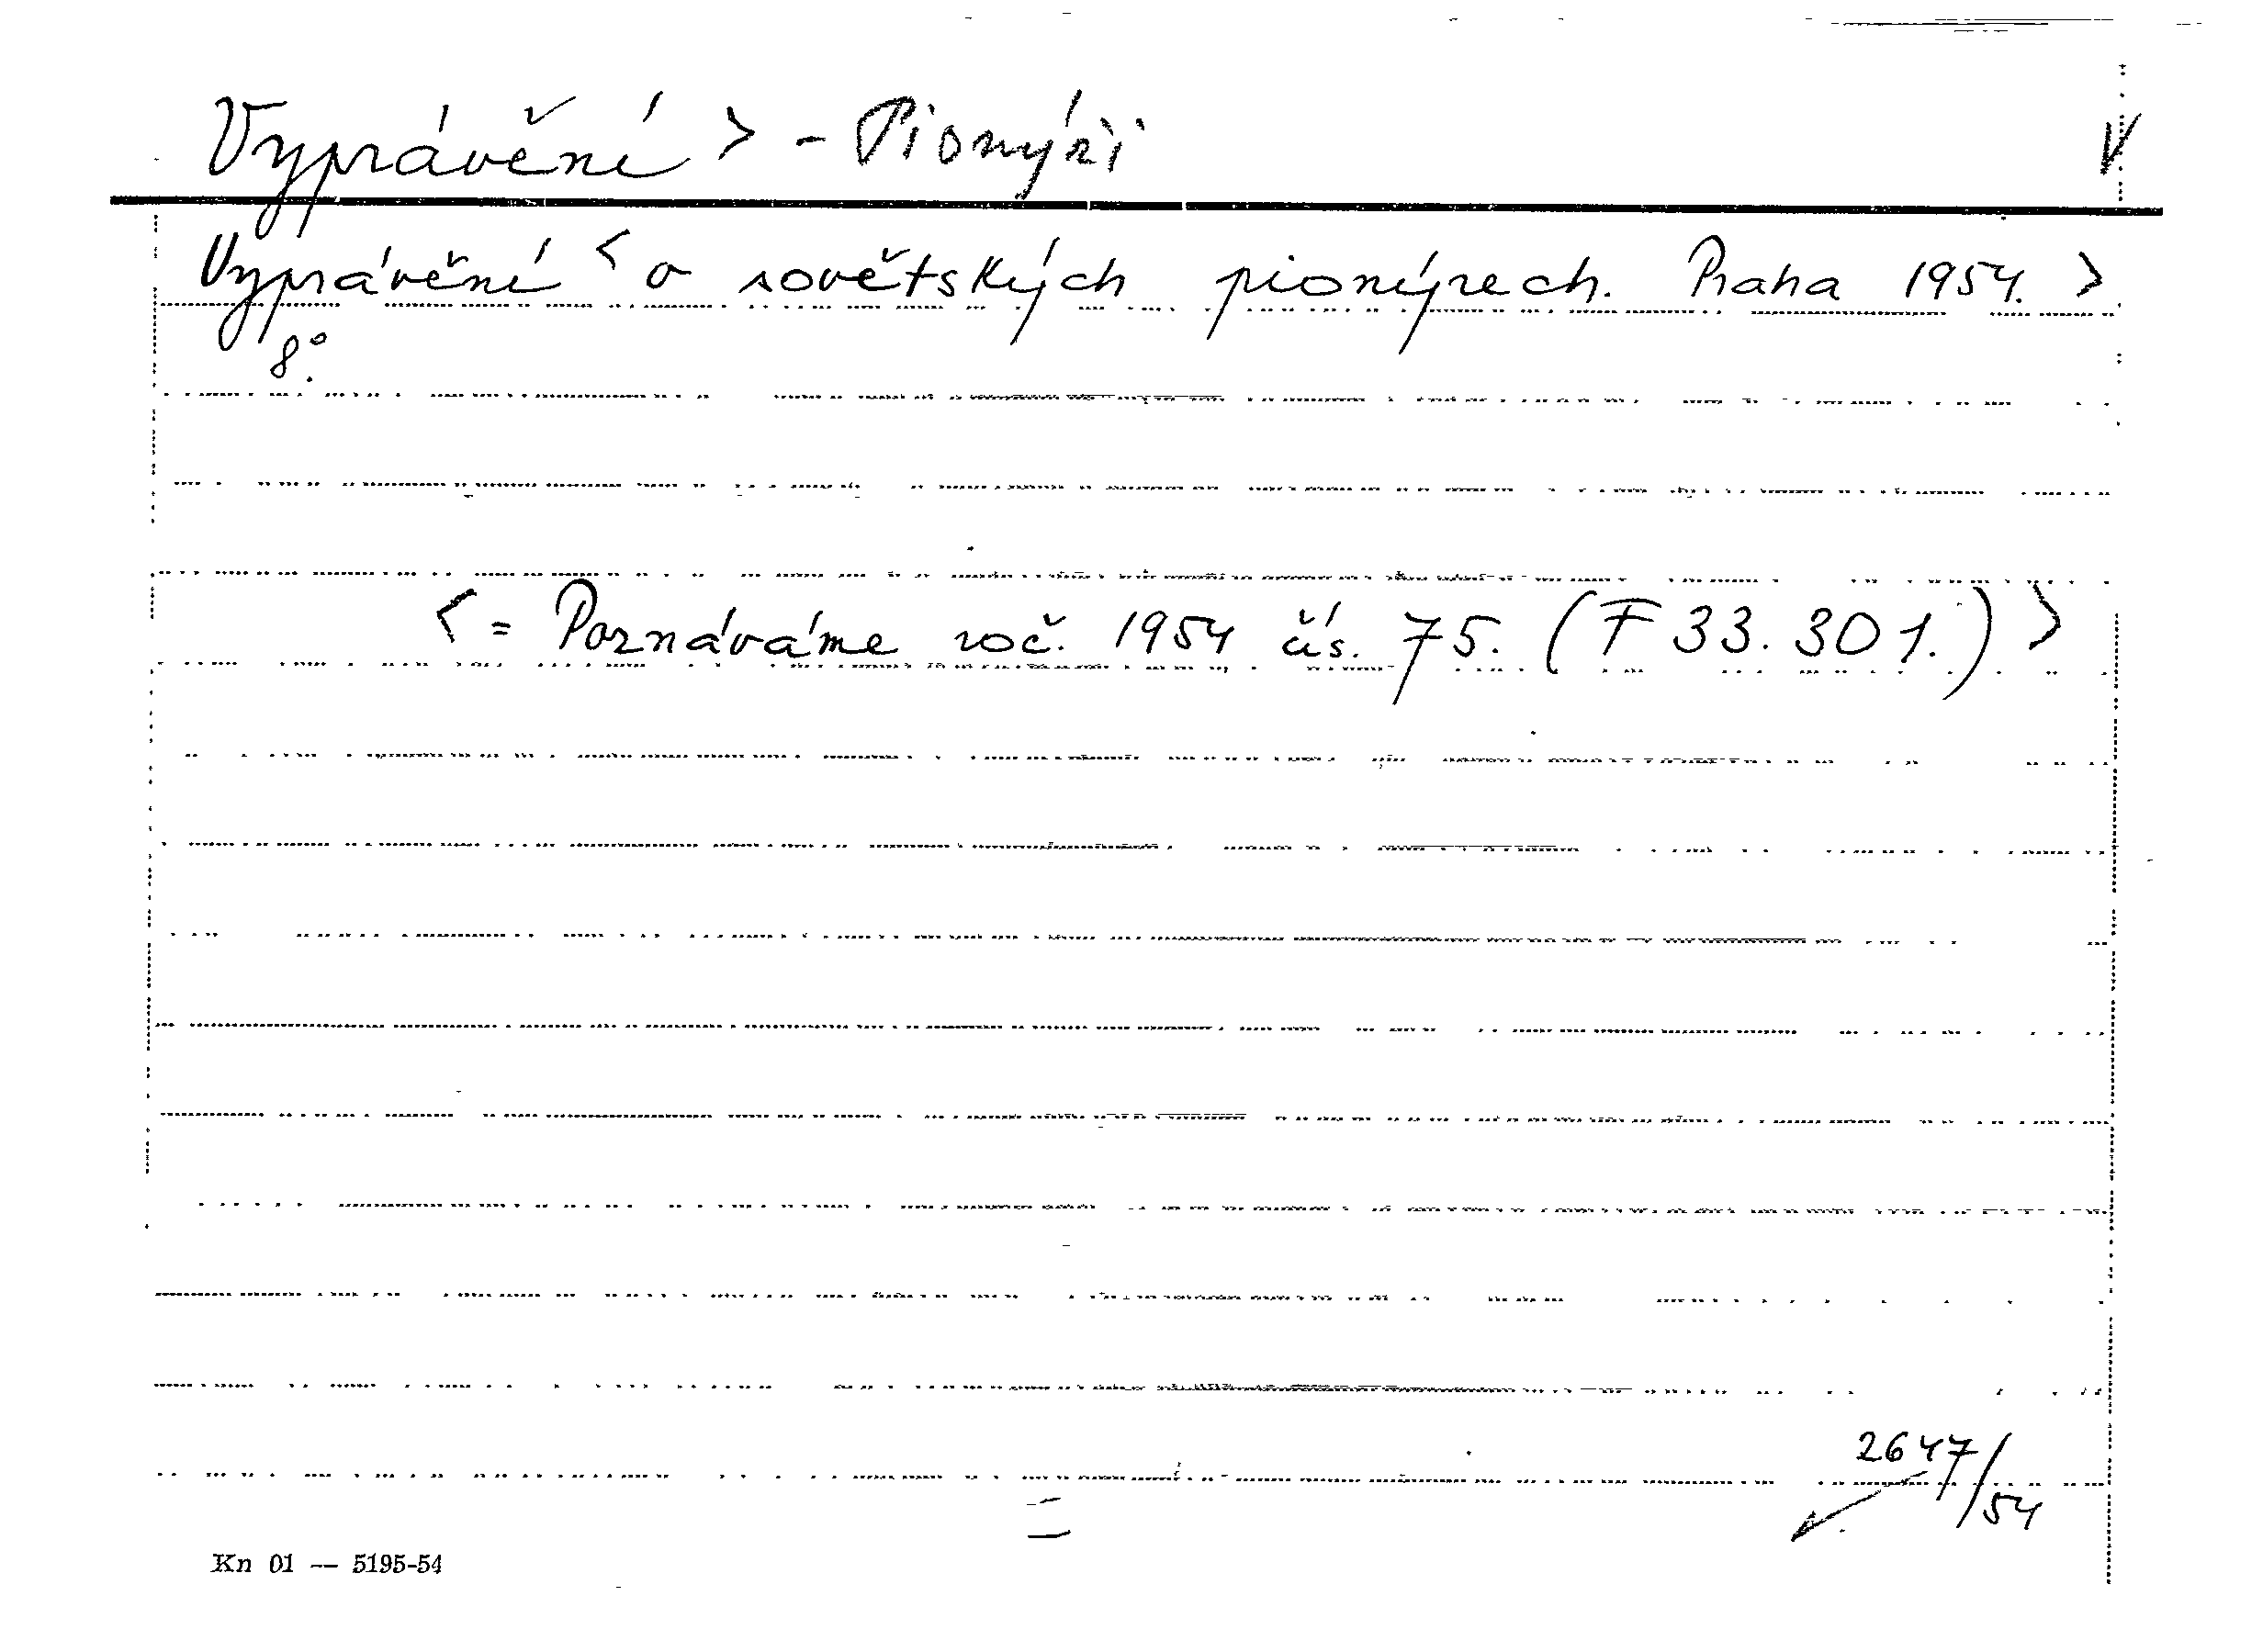 Vyprávění > - Pionýři V
Vyprávění < o sovětských pionýrech. Praha 1954. >
8°.
< = Poznáváme roč. 1954 čís. 75. (F 33.301.) >
2647/54
Kn 01 — 5195-54